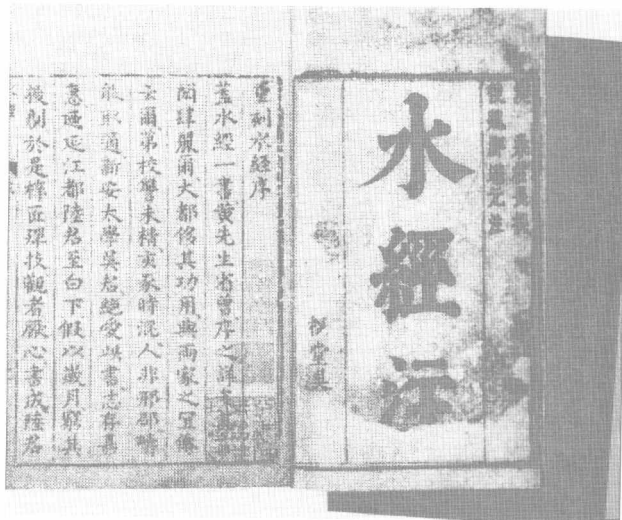 後魏酈道元注
水經注
重刻水經序
蓋水經一書黄先生省曾序之詳
閎肆麗爾大都侈其功用與兩家之宜傳
云爾第校讐未精亥豕時混人非邢邵疇
能取適新安太學吳君絶愛此書志存嘉
惠延江都陸君至白下假以歲月窮其
於是梓匠殫技觀者厭心書成陸君